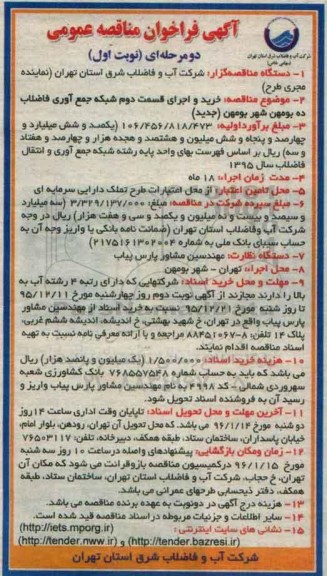 آگهی فراخوان مناقصه عمومی
دو مرحله‌ای (نوبت اول)
شرکت آب و فاضلاب شرق استان تهران
(سهامی خاص)
۱- دستگاه مناقصه‌گزار: شرکت آب و فاضلاب شرق استان تهران (نماینده
مجری طرح)
۲- موضوع مناقصه: خرید و اجرای قسمت دوم شبکه جمع آوری فاضلاب
ده بومهن شهر بومهن (جدید)
۳- مبلغ برآورداولیه: ۱۰۶/۴۵۶/۸۱۸/۴۷۳ (یکصد و شش میلیارد و
چهارصد و پنجاه و شش میلیون و هشتصد و هجده هزار و چهارصد و هفتاد
و سه) ریال بر اساس فهرست بهای واحد پایه رشته شبکه جمع آوری و انتقال
فاضلاب سال ۱۳۹۵
۴- مدت زمان اجرا: ۱۸ ماه
۵- محل تامین اعتبار: از محل اعتبارات طرح تملک دارایی سرمایه ای
۶- مبلغ سپرده شرکت در مناقصه: مبلغ ۳/۳۲۹/۱۳۷/۰۰۰ (سه میلیارد
و سیصد و بیست و نه میلیون و یکصد و سی و هفت هزار) ریال در وجه
شرکت آب وفاضلاب شرق استان تهران (ضمانت نامه بانکی یا واریز وجه آن به
حساب سیبای بانک ملی به شماره ۲۱۷۵۱۶۱۳۰۲۰۰۴)
۷- دستگاه نظارت: مهندسین مشاور پارس پیاب
۸- محل اجرا: تهران - شهر بومهن
۹- مهلت و محل خرید اسناد: شرکتهایی که دارای رتبه ۴ رشته آب به
بالا را دارند مجازند از آگهی نوبت دوم روز چهارشنبه مورخ ۹۵/۱۲/۱۱
تا روز شنبه مورخ ۹۵/۱۲/۲۱ نسبت به خرید اسناد از مهندسین مشاور
پارس پیاب واقع در تهران، خ شهید بهشتی، خ اندیشه، اندیشه ششم غربی،
پلاک ۱۴ تلفن: ۸-۸۸۴۵۱۰۶۷ مراجعه و با ارائه معرفی نامه نسبت به تهیه
اسناد مناقصه اقدام نمایند.
۱۰- هزینه خرید اسناد: ۱/۵۰۰/۰۰۰ (یک میلیون و پانصد هزار) ریال
می باشد که باید به حساب شماره ۷۶۸۵۵۷۵۴۸ بانک کشاورزی شعبه
سهروردی شمالی - کد ۴۹۹۸ به نام مهندسین مشاور پارس پیاب واریز و
رسید آن به فروشنده اسناد تحویل شود.
۱۱- آخرین مهلت و محل تحویل اسناد: تاپایان وقت اداری ساعت ۱۴ روز
دو شنبه مورخ ۹۶/۱/۱۴ می باشد. که محل تحویل آن تهران، رودهن، بلوار امام،
خیابان پاسداران، ساختمان ستاد، طبقه همکف، دبیرخانه، تلفن: ۷۶۵۰۳۱۱۷
۱۲- زمان ومکان بازگشایی: پیشنهادهای واصله درساعت ۱۰ روز سه شنبه
مورخ ۹۶/۱/۱۵ درکمیسیون مناقصه بازوقرائت می شود که مکان آن
تهران، خ حجاب، شرکت آب و فاضلاب شرق استان تهران، ساختمان ستاد، طبقه
همکف، دفتر ذیحسابی طرحهای عمرانی می باشد.
۱۳- هزینه درج آگهی در دونوبت به عهده برنده مناقصه می باشد.
۱۴- سایر اطلاعات و جزئیات مربوطه در اسناد مناقصه قید شده است.
۱۵- نشانی های سایت اینترنتی: (http://iets.mporg.ir)
(http://tender.bazresi.ir) و (http://tender.nww.ir)
شرکت آب و فاضلاب شرق استان تهران